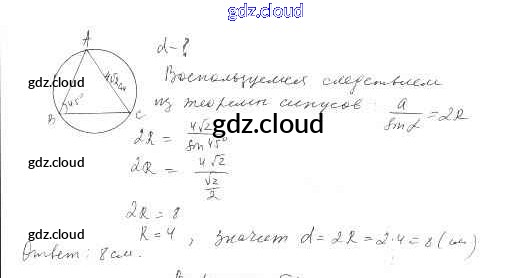 gdz.cloud
A
d - ?
4√2 см
Воспользуемся следствием
gdz.cloud
из теоремы синусов: a/sin α = 2R
45°
B
C
2R = 4√2/sin 45°
gdz.cloud
gdz.cloud
2R = 4√2/(√2/2)
gdz.cloud
2R = 8
gdz.cloud
R = 4, значит d = 2R = 2·4 = 8 (см)
Ответ: 8 см.